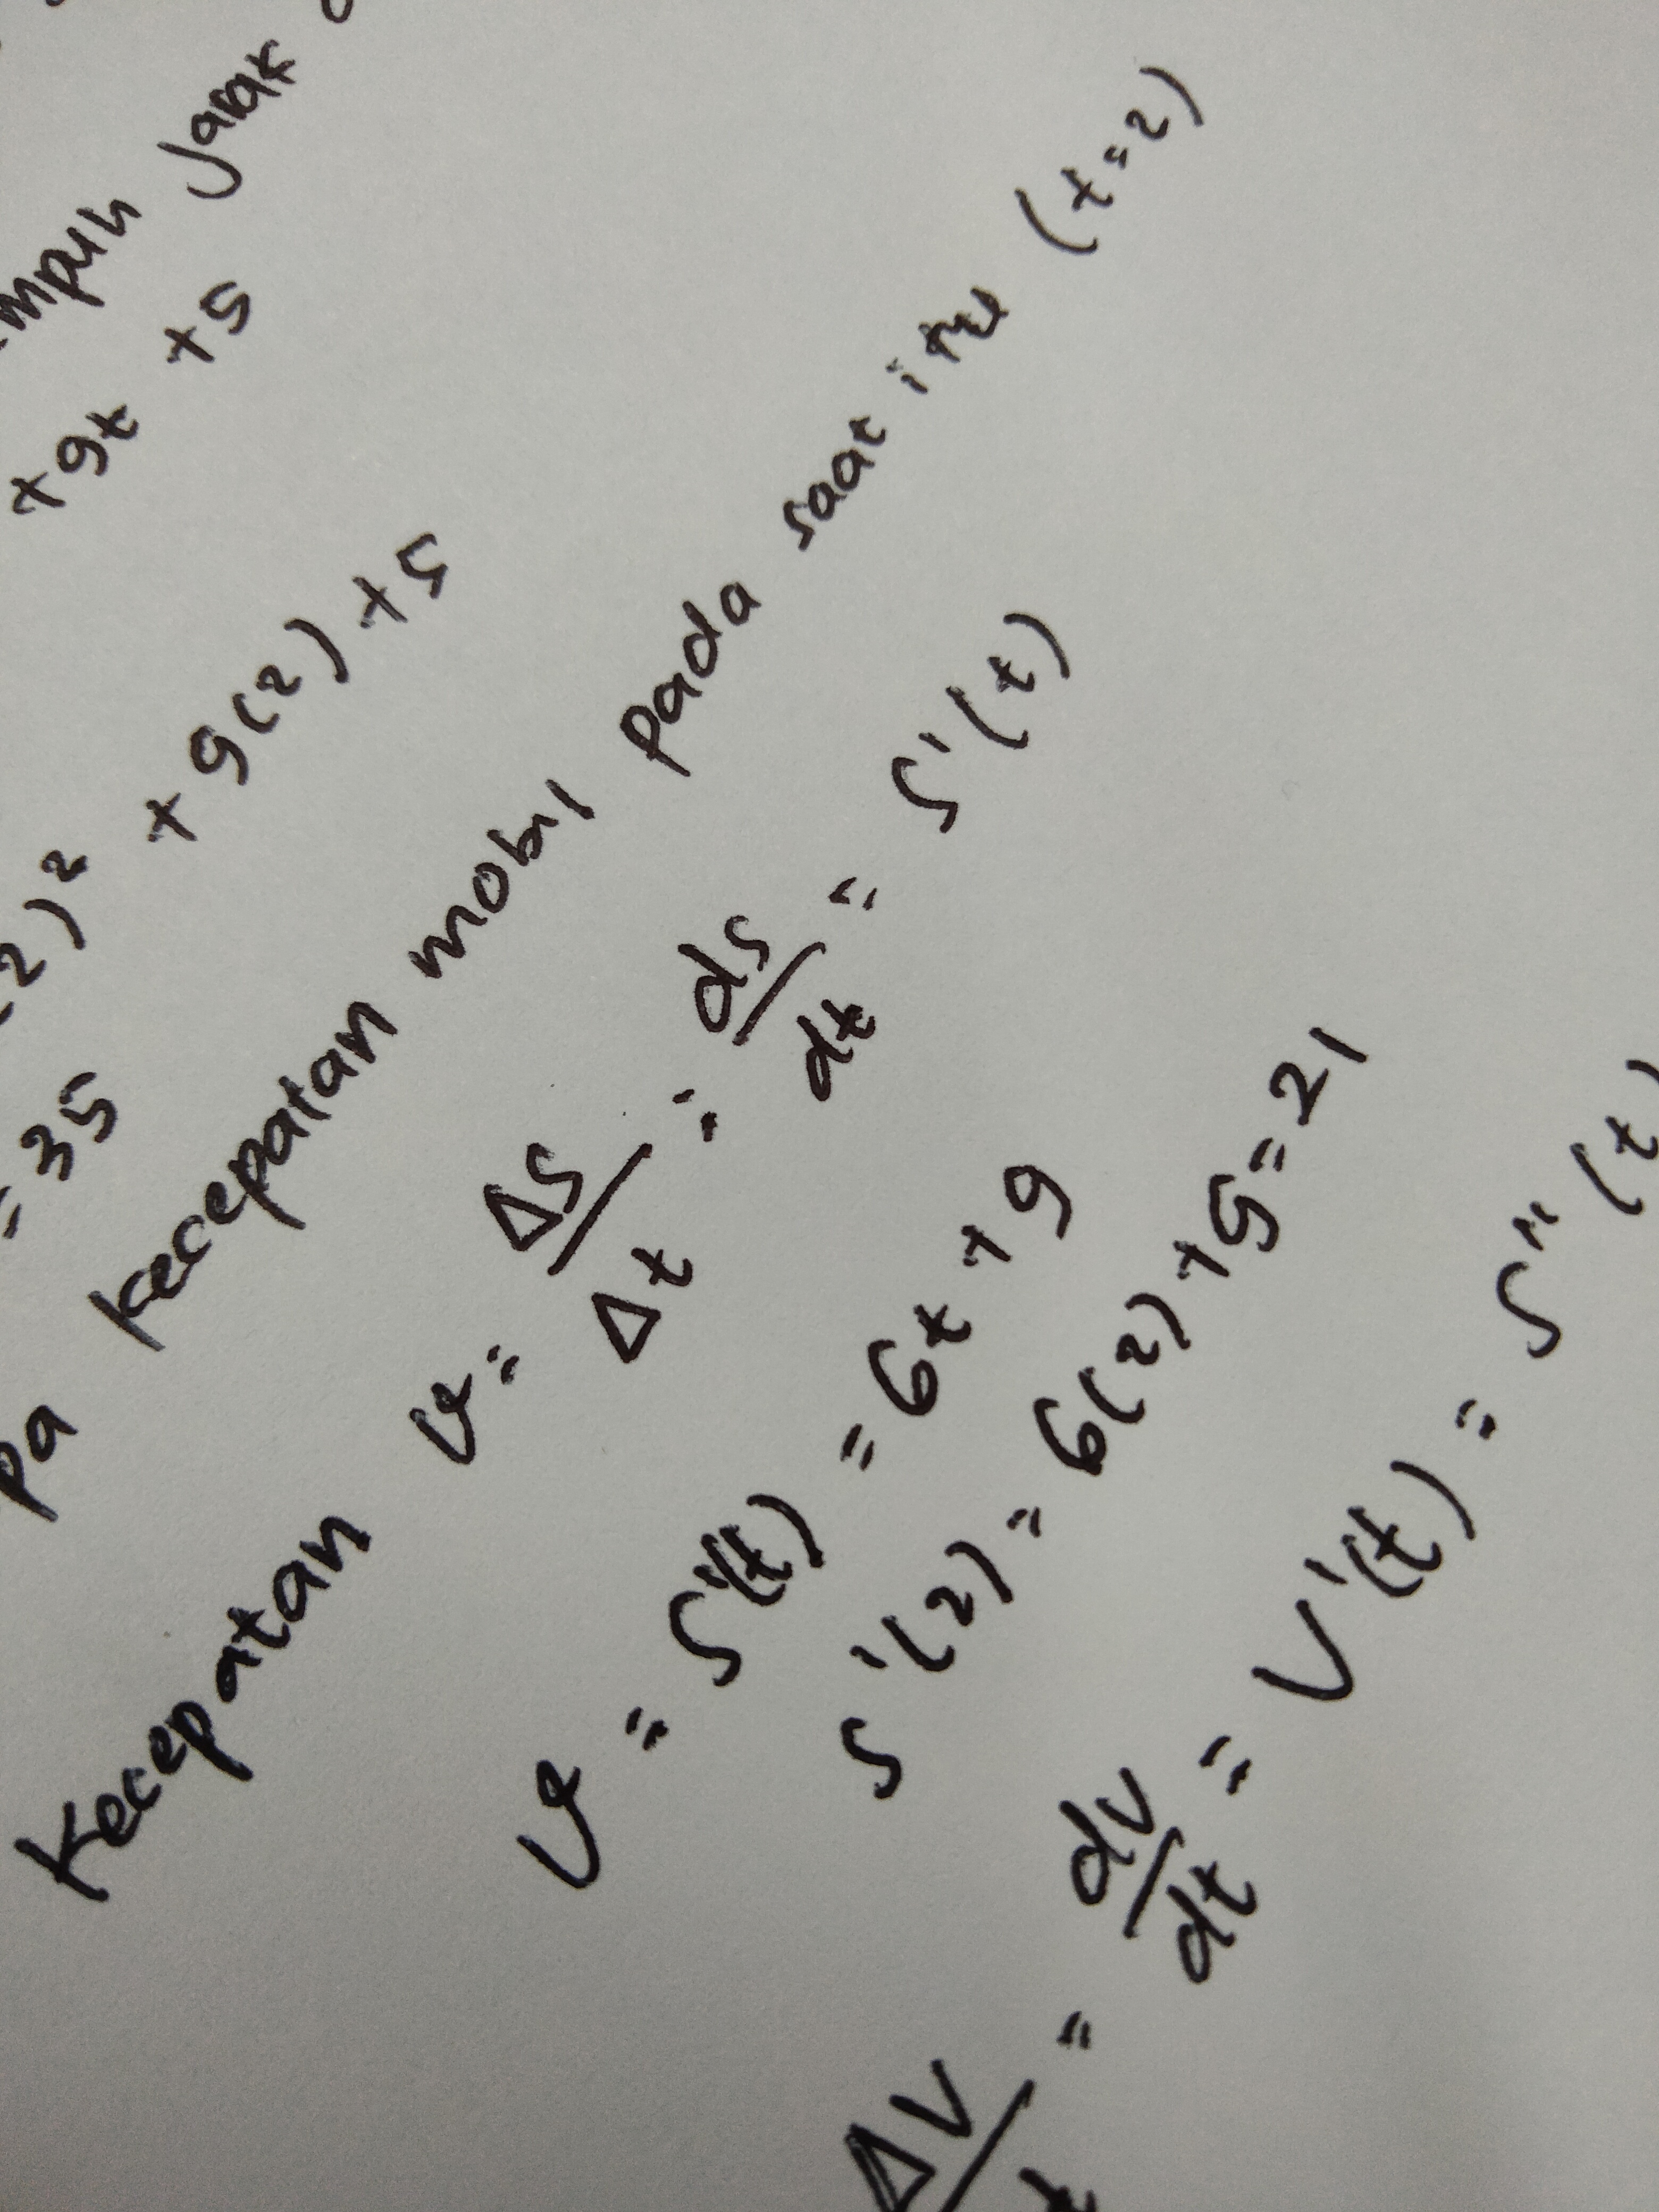 mpuh Jarak
+9t +5
2)² + 9(2) + 5
= 35
pa kecepatan mobil pada saat itu (t=2)
Kecepatan v = Δs/Δt = ds/dt = s'(t)
v = s'(t) = 6t + 9
s'(2) = 6(2) + 9 = 21
ΔV/t = dv/dt = V'(t) = s''(t)